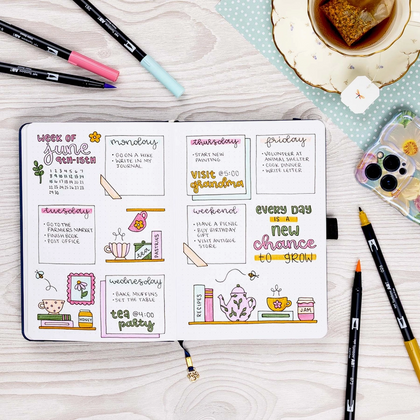 WEEK OF
June
9TH-15TH
monday
• GO ON A HIKE
• WRITE IN MY
JOURNAL
tuesday
• GO TO THE
FARMERS MARKET
• FINISH BOOK
• POST OFFICE
TEA
PASTRIES
wednesday
• BAKE MUFFINS
• SET THE TABLE
tea @4:00
party
HONEY
thursday
• START NEW
PAINTING
VISIT @5:00
grandma
friday
• VOLUNTEER AT
ANIMAL SHELTER
• COOK DINNER
• WRITE LETTER
weekend
• HAVE A PICNIC
• BUY BIRTHDAY
GIFT
• VISIT ANTIQUE
STORE
EVERY DAY
IS A
NEW
chance
TO GROW
RECIPES
JAM